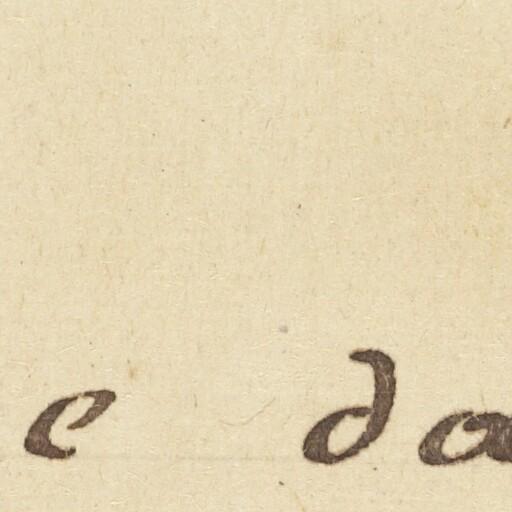 e da